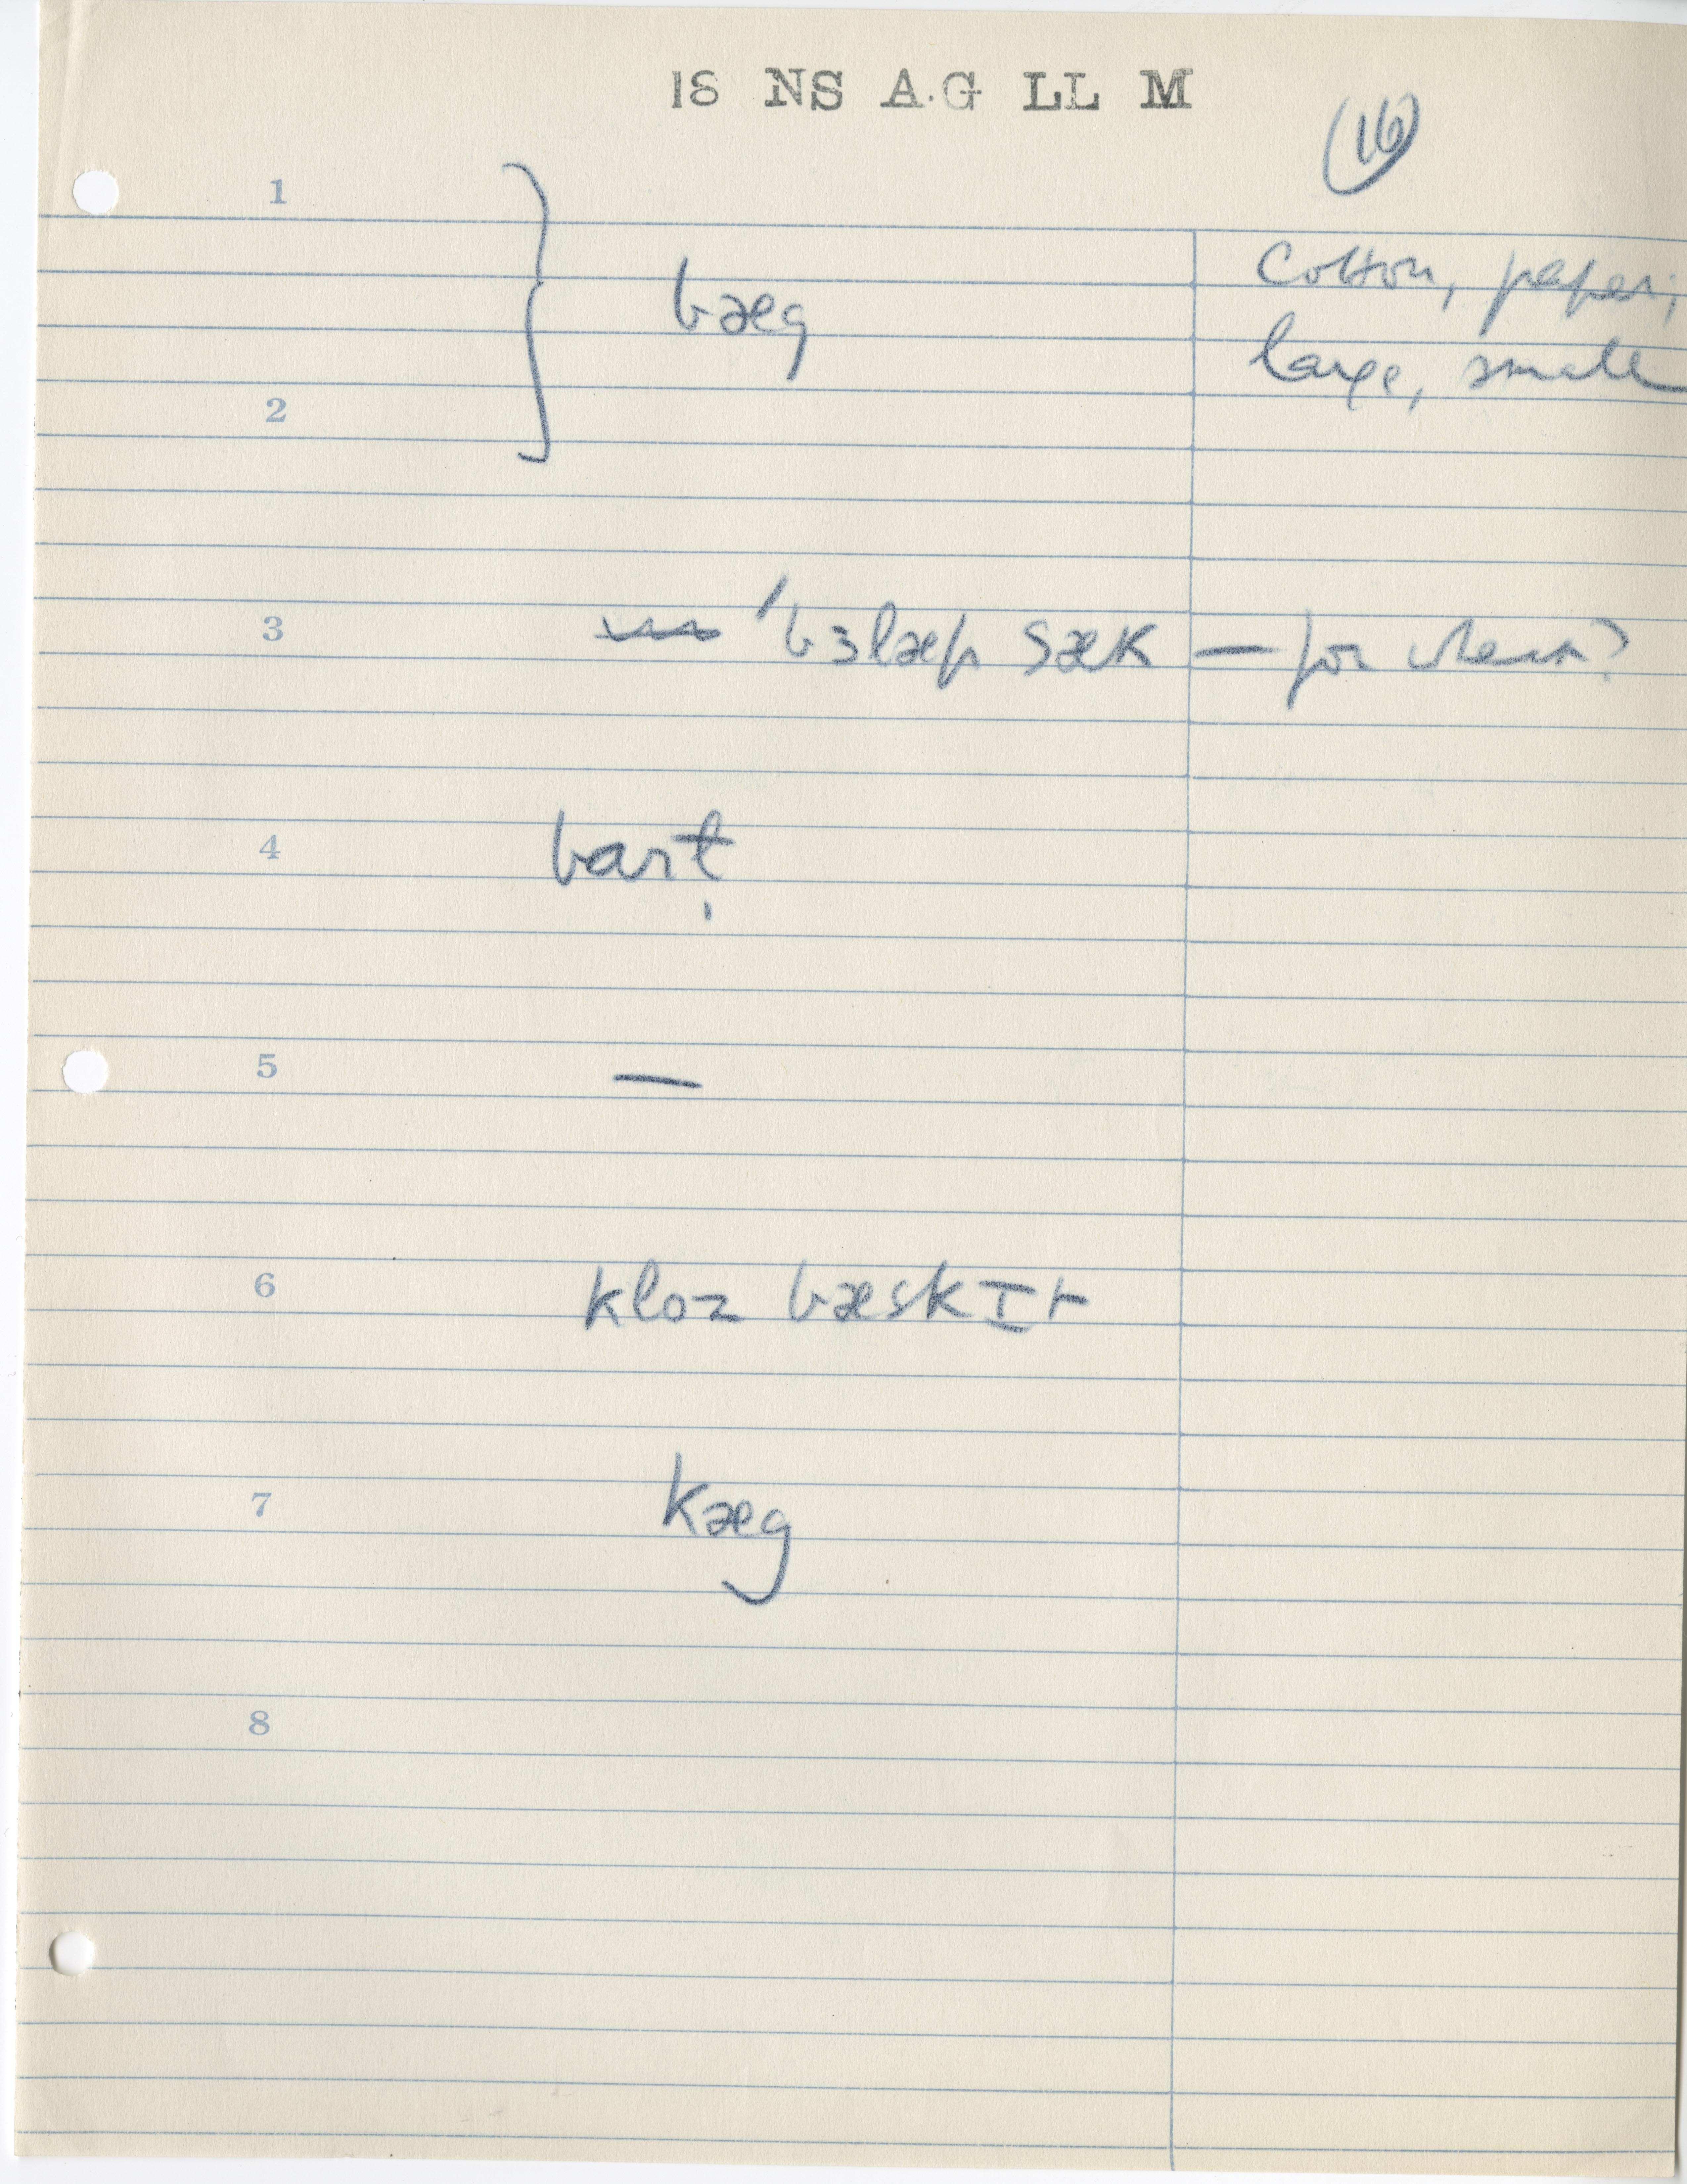 18 NS A.G LL M
(16)
1
bæg
cotton, paper;
large, small
2
3 ˈbɜlæp sæk — for wheat?
4 baɪt̩
5 —
6 kloz bæskɪt
7 kæg
8